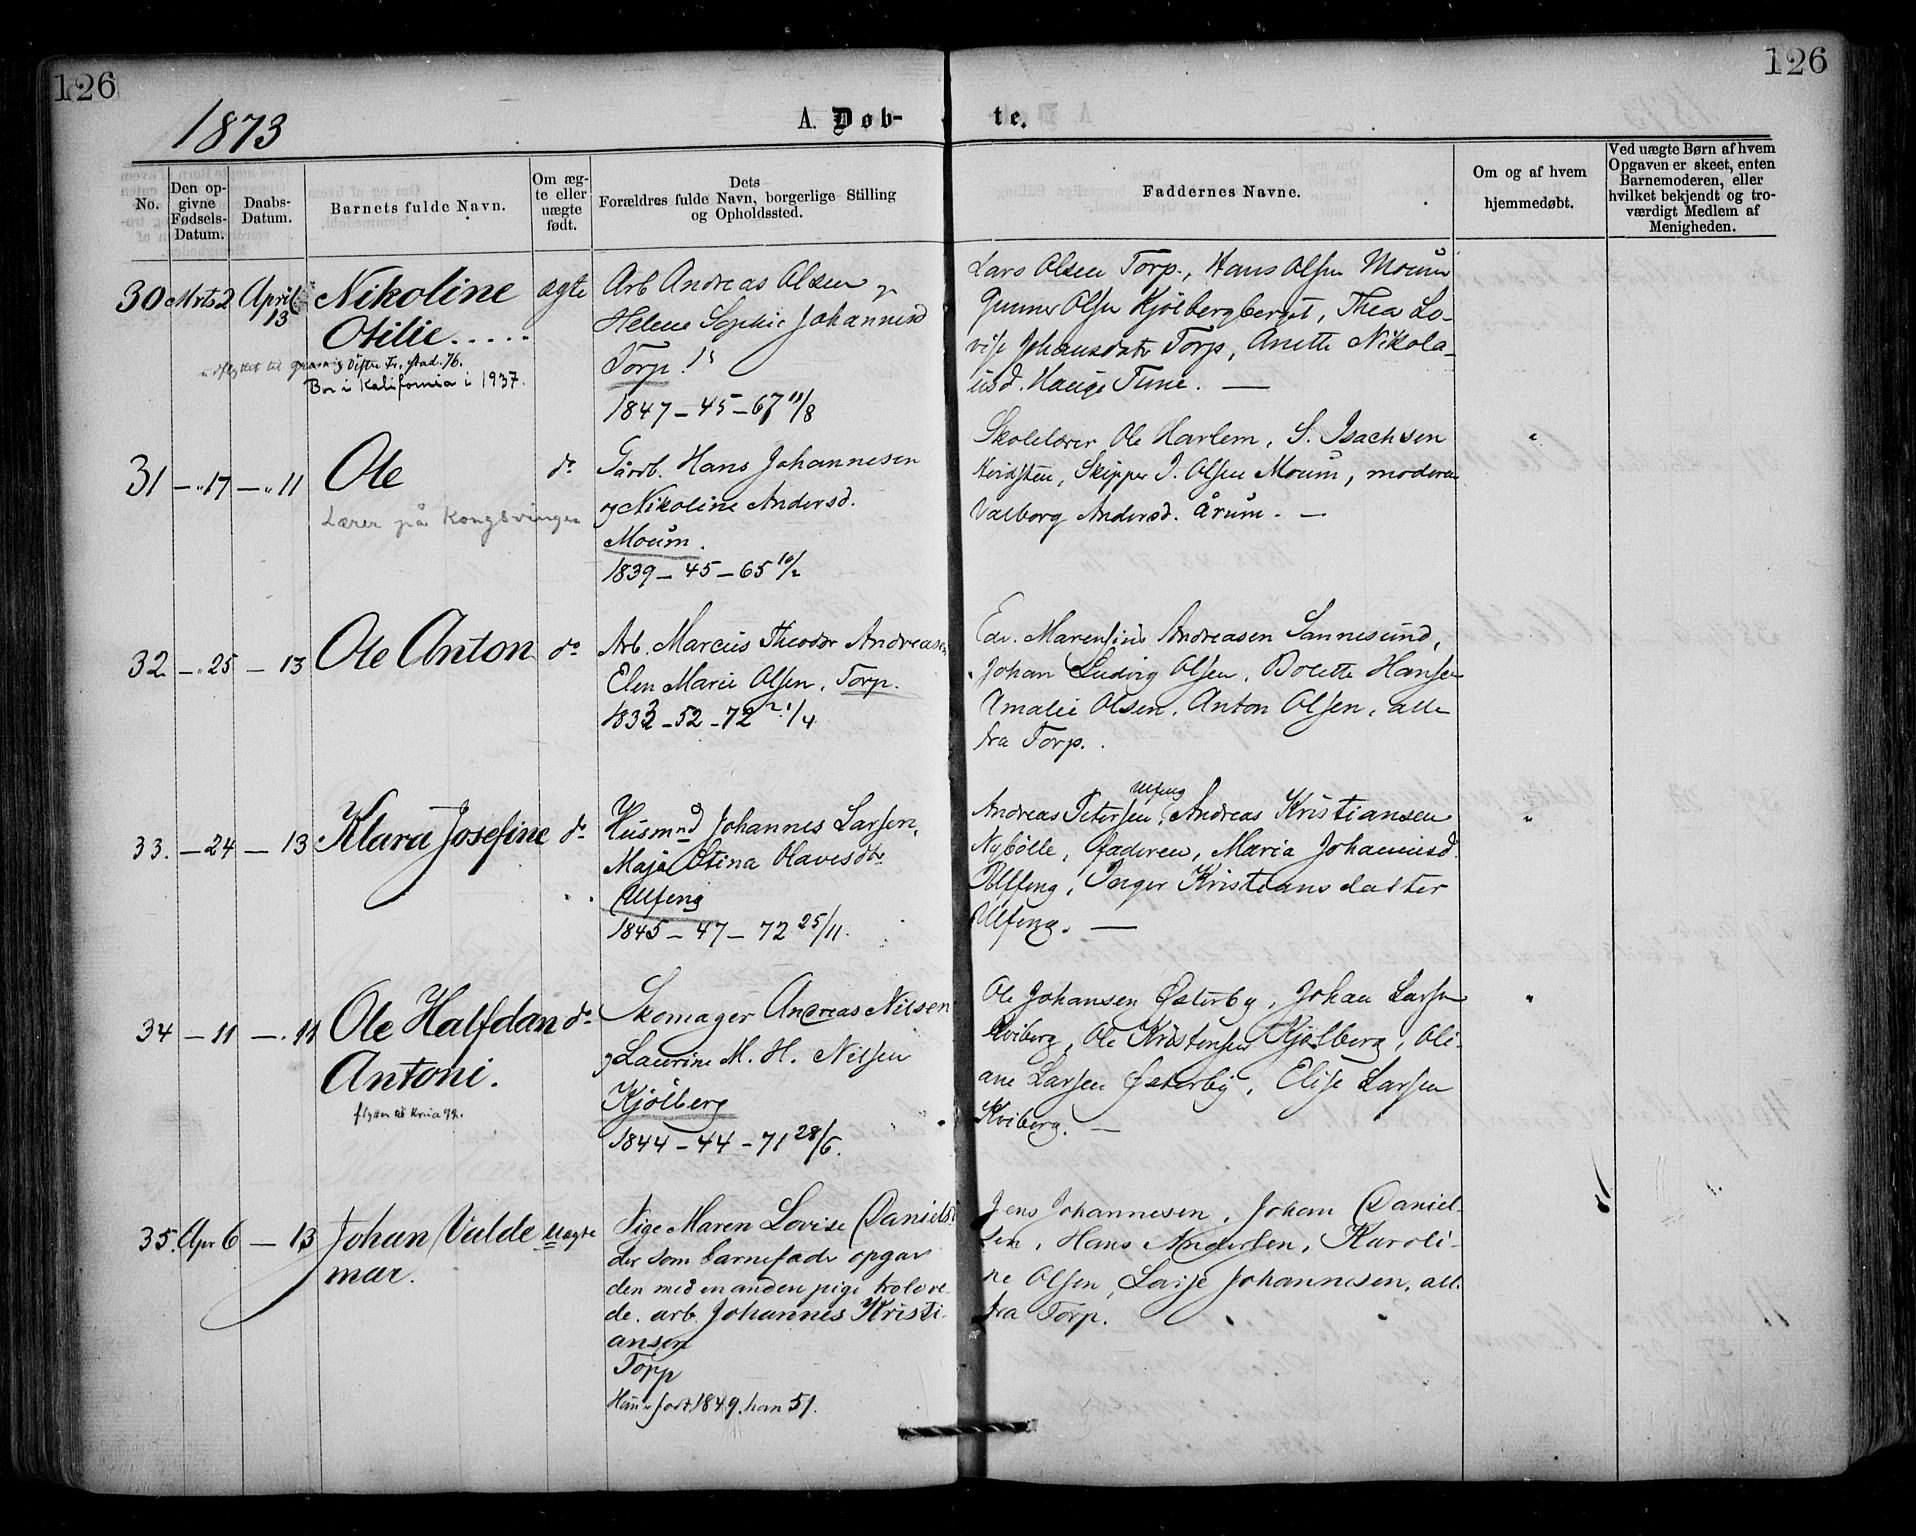 126
126
1873
A. Døb-
te.
No.
Den opgivne Fødsels-Datum.
Daabs-Datum.
Barnets fulde Navn.
Om ægte eller uægte født.
Dets
Forældres fulde Navn, borgerlige Stilling
og Opholdssted.
Faddernes Navne.
Om og af hvem
hjemmedøbt.
Ved uægte Børn af hvem
Opgaven er skeet, enten
Barnemoderen, eller
hvilket bekjendt og tro-
værdigt Medlem af
Menigheden.
30 Mrts 2 April 13 Nikoline ægte
Otilie.....
udflyttet til
Bor i Kalifornia i 1937.
Arb Andreas Olsen og
Helene Sophie Johannesd
Torp.
1847 - 45 - 67 11/8
Lars Olsen Torp., Hans Olsen Moum
Gunner Olsen Kjølbergberget, Thea Lo-
vise Johansdatr Torp, Anette Nikola-
usd. Hauge Tune. —
31 - " 17 - " 11 Ole do
Lærer på Kongsvinger
Gårb. Hans Johannesen
og Nikoline Andersd.
Moum.
1839 - 45 - 65 10/2
Skolelærer Ole Harlem, S. Isachsen
Skipper J. Olsen Moum, moderen
Valborg Andersd. Årum. —
32. - " 25 - 13 Ole Anton do
Arb. Marcus Theodor Andreasen
Elen Marie Olsen, Torp.
1833 - 52 - 72 21/4
Edv. Marensius Andreasen Sannesund,
Johan Ludvig Olsen, Bolette Hansen
Amalie Olsen, Anton Olsen, alle
fra Torp.
33. - 24 - 13 Klara Josefine do
Husmnd Johannes Larsen,
Maja Stina Olavesdtr
Ulfeng
1845 - 47 - 72 25/11.
Ulfeng
Andreas Petersen, Andreas Kristiansen
Nybølle, faderen, Maria Johannisd.
Ulfeng, Inger Kristiansdatter
Ulfeng. —
34 - 11 - " 11 Ole Halfdan do
Antoni.
flyttet til Kria 92.
Skomager Andreas Nilsen
og Laurine M. H. Nilsen
Kjølberg
1844 - 44 - 71 28/6.
Ole Johansen Østerby, Johan Larsen
Kviberg, Ole Kristensen Kjølberg, Oli-
ane Larsen Østerby, Elise Larsen
Kviberg. —
35. Apr 6 - 13 Johan Valde uægte
mar.
Pige Maren Lovise Danielsd
der som barnefader opgav
den med en anden pige trolove-
de. arb. Johannes Kristi-
ansen
Torp
Hun født 1849, han 51.
Jens Johannesen, Johan Daniel-
sen, Hans Andersen, Karoli-
ne Olsen, Lovise Johannesen, alle
fra Torp.